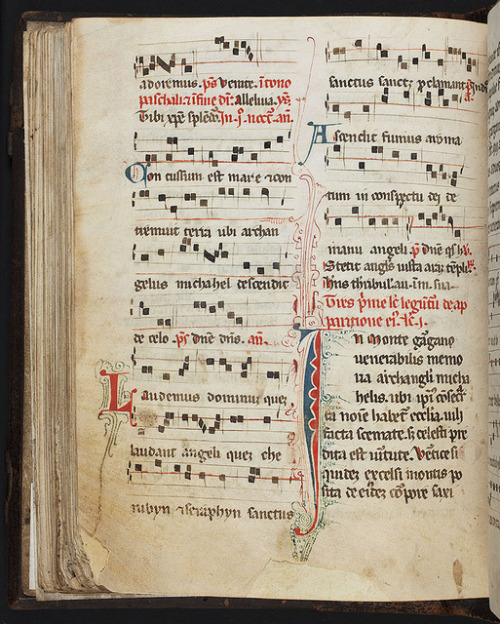 adoremus. ps Venite. in tono
paschali. et in fine dni. alleluia. ys.
Tibi xpe splendor. In. j. noct. an.
Concussum est mare et con
tremuit terra ubi archan
gelus michahel descendit
de celo. ps. dne dns. an.
Laudemus dominum quem
laudant angeli quez che
rubyn et seraphyn sanctus
sanctus sanctz proclamant.
Ascendit fumus aroma
tum in conspectu dei de
manu angeli. ps dne qs hab.
Stetit angls iuxta aram templi.
hns thribul. au. in. sua.
Tres prime lc legunt de ap
paritione ei. lc. i.
In monte gargano
venerabilis memo
ria archangli micha
helis. ubi ipi consecr
ta noie habet ecclia. vili
facta scemate. sz celesti pre
dita est virtute. Vertice si
quidez excelsi montis po
sita de eidez corpore saxi